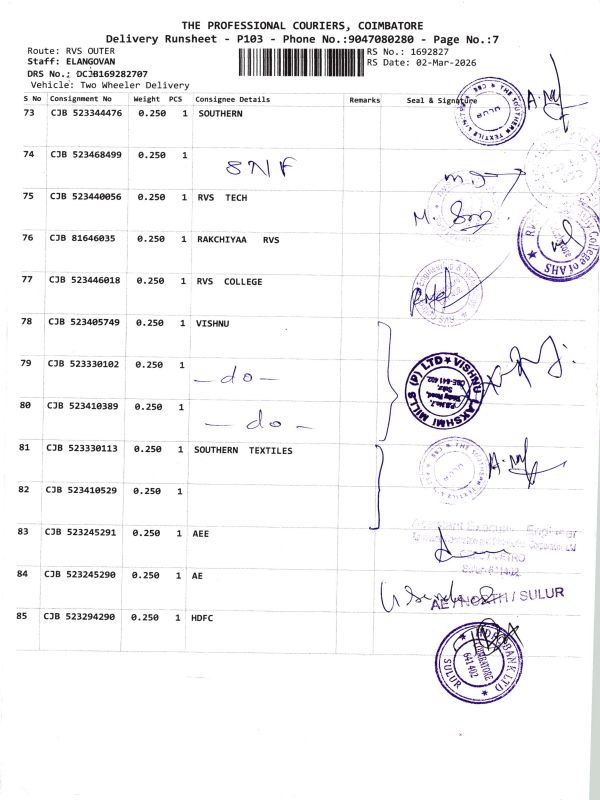 THE PROFESSIONAL COURIERS, COIMBATORE
Delivery Runsheet - P103 - Phone No.:9047080280 - Page No.:7
Route: RVS OUTER
RS No.: 1692827
Staff: ELANGOVAN
RS Date: 02-Mar-2026
DRS No.: DCJB169282707
Vehicle: Two Wheeler Delivery
S No Consignment No Weight PCS Consignee Details Remarks Seal & Signature
73 CJB 523344476 0.250 1 SOUTHERN
74 CJB 523468499 0.250 1 SNF
75 CJB 523440056 0.250 1 RVS TECH
76 CJB 81646035 0.250 1 RAKCHIYAA RVS
College of AHS
77 CJB 523446018 0.250 1 RVS COLLEGE
78 CJB 523405749 0.250 1 VISHNU
79 CJB 523330102 0.250 1 - do -
VISHNU LAKSHMI MILLS (P) LTD
80 CJB 523410389 0.250 1 - do -
81 CJB 523330113 0.250 1 SOUTHERN TEXTILES
82 CJB 523410529 0.250 1
83 CJB 523245291 0.250 1 AEE
Assistant Executive Engineer
84 CJB 523245290 0.250 1 AE
AE / NORTH / SULUR
85 CJB 523294290 0.250 1 HDFC
HDFC BANK LTD
COIMBATORE
641 402
SULUR